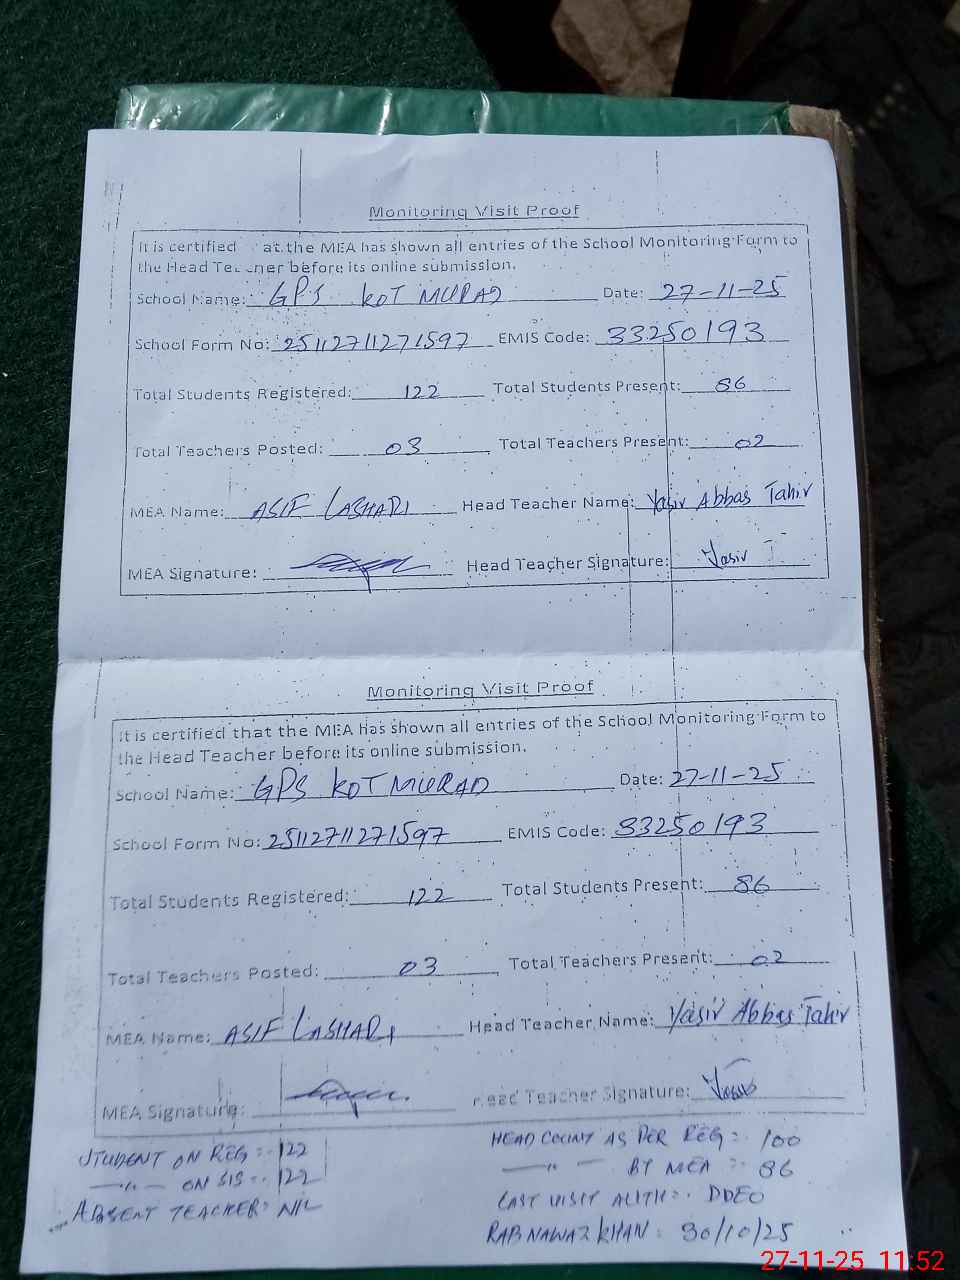 Monitoring Visit Proof
It is certified at the MEA has shown all entries of the School Monitoring Form to
the Head Teacher before its online submission.
School Name: GPS KOT MURAD Date: 27-11-25
School Form No: 25112711271597 EMIS Code: 33250193
Total Students Registered: 122 Total Students Present: 86
Total Teachers Posted: 03 Total Teachers Present: 02
MEA Name: ASIF LASHARI Head Teacher Name: Yasir Abbas Tahir
MEA Signature: Head Teacher Signature: Yasir T
Monitoring Visit Proof
It is certified that the MEA has shown all entries of the School Monitoring Form to
the Head Teacher before its online submission.
School Name: GPS KOT MURAD Date: 27-11-25
School Form No: 25112711271597 EMIS Code: 33250193
Total Students Registered: 122 Total Students Present: 86
Total Teachers Posted: 03 Total Teachers Present: 02
MEA Name: ASIF LASHARI Head Teacher Name: Yasir Abbas Tahir
MEA Signature: Head Teacher Signature: Yasir
STUDENT ON REG:- 122 HEAD COUNT AS PER REG:- 100
—"— ON SIS:- 122 —"— BY MEA :- 86
ABSENT TEACHER:- NIL LAST VISIT AUTH:- DDEO
RAB NAWAZ KHAN: 30/10/25
27-11-25 11:52